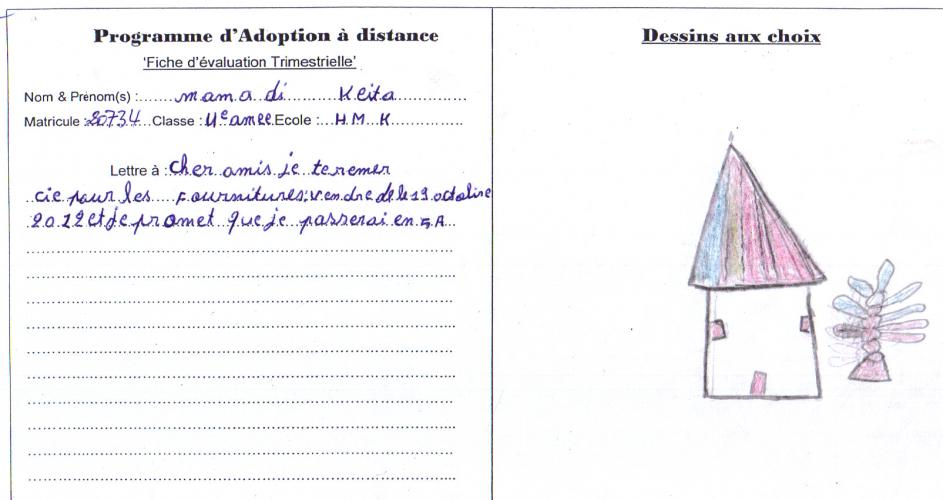 Programme d'Adoption à distance
'Fiche d'évaluation Trimestrielle'
Nom & Prénom(s) :.......mama di.......Keita..............
Matricule :20734...Classe :4e amee.Ecole :...H.M...K..............
Lettre à : cher amis je teremer
cie pour les fournitures: vendredele 19 octobre
2012 et je promet que je passerai en 5A
Dessins aux choix